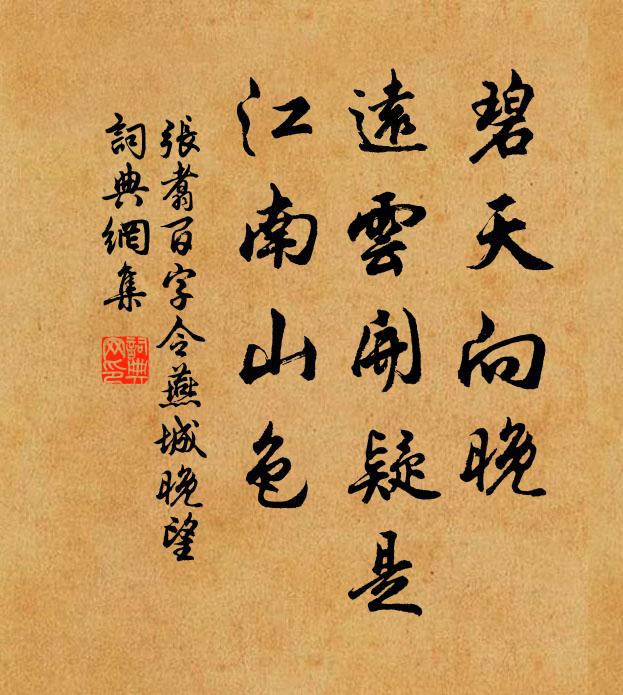 碧天向晚
遠雲開疑是
江南山色
張翥百字令燕城晚望
詞典網集
詞典
网印